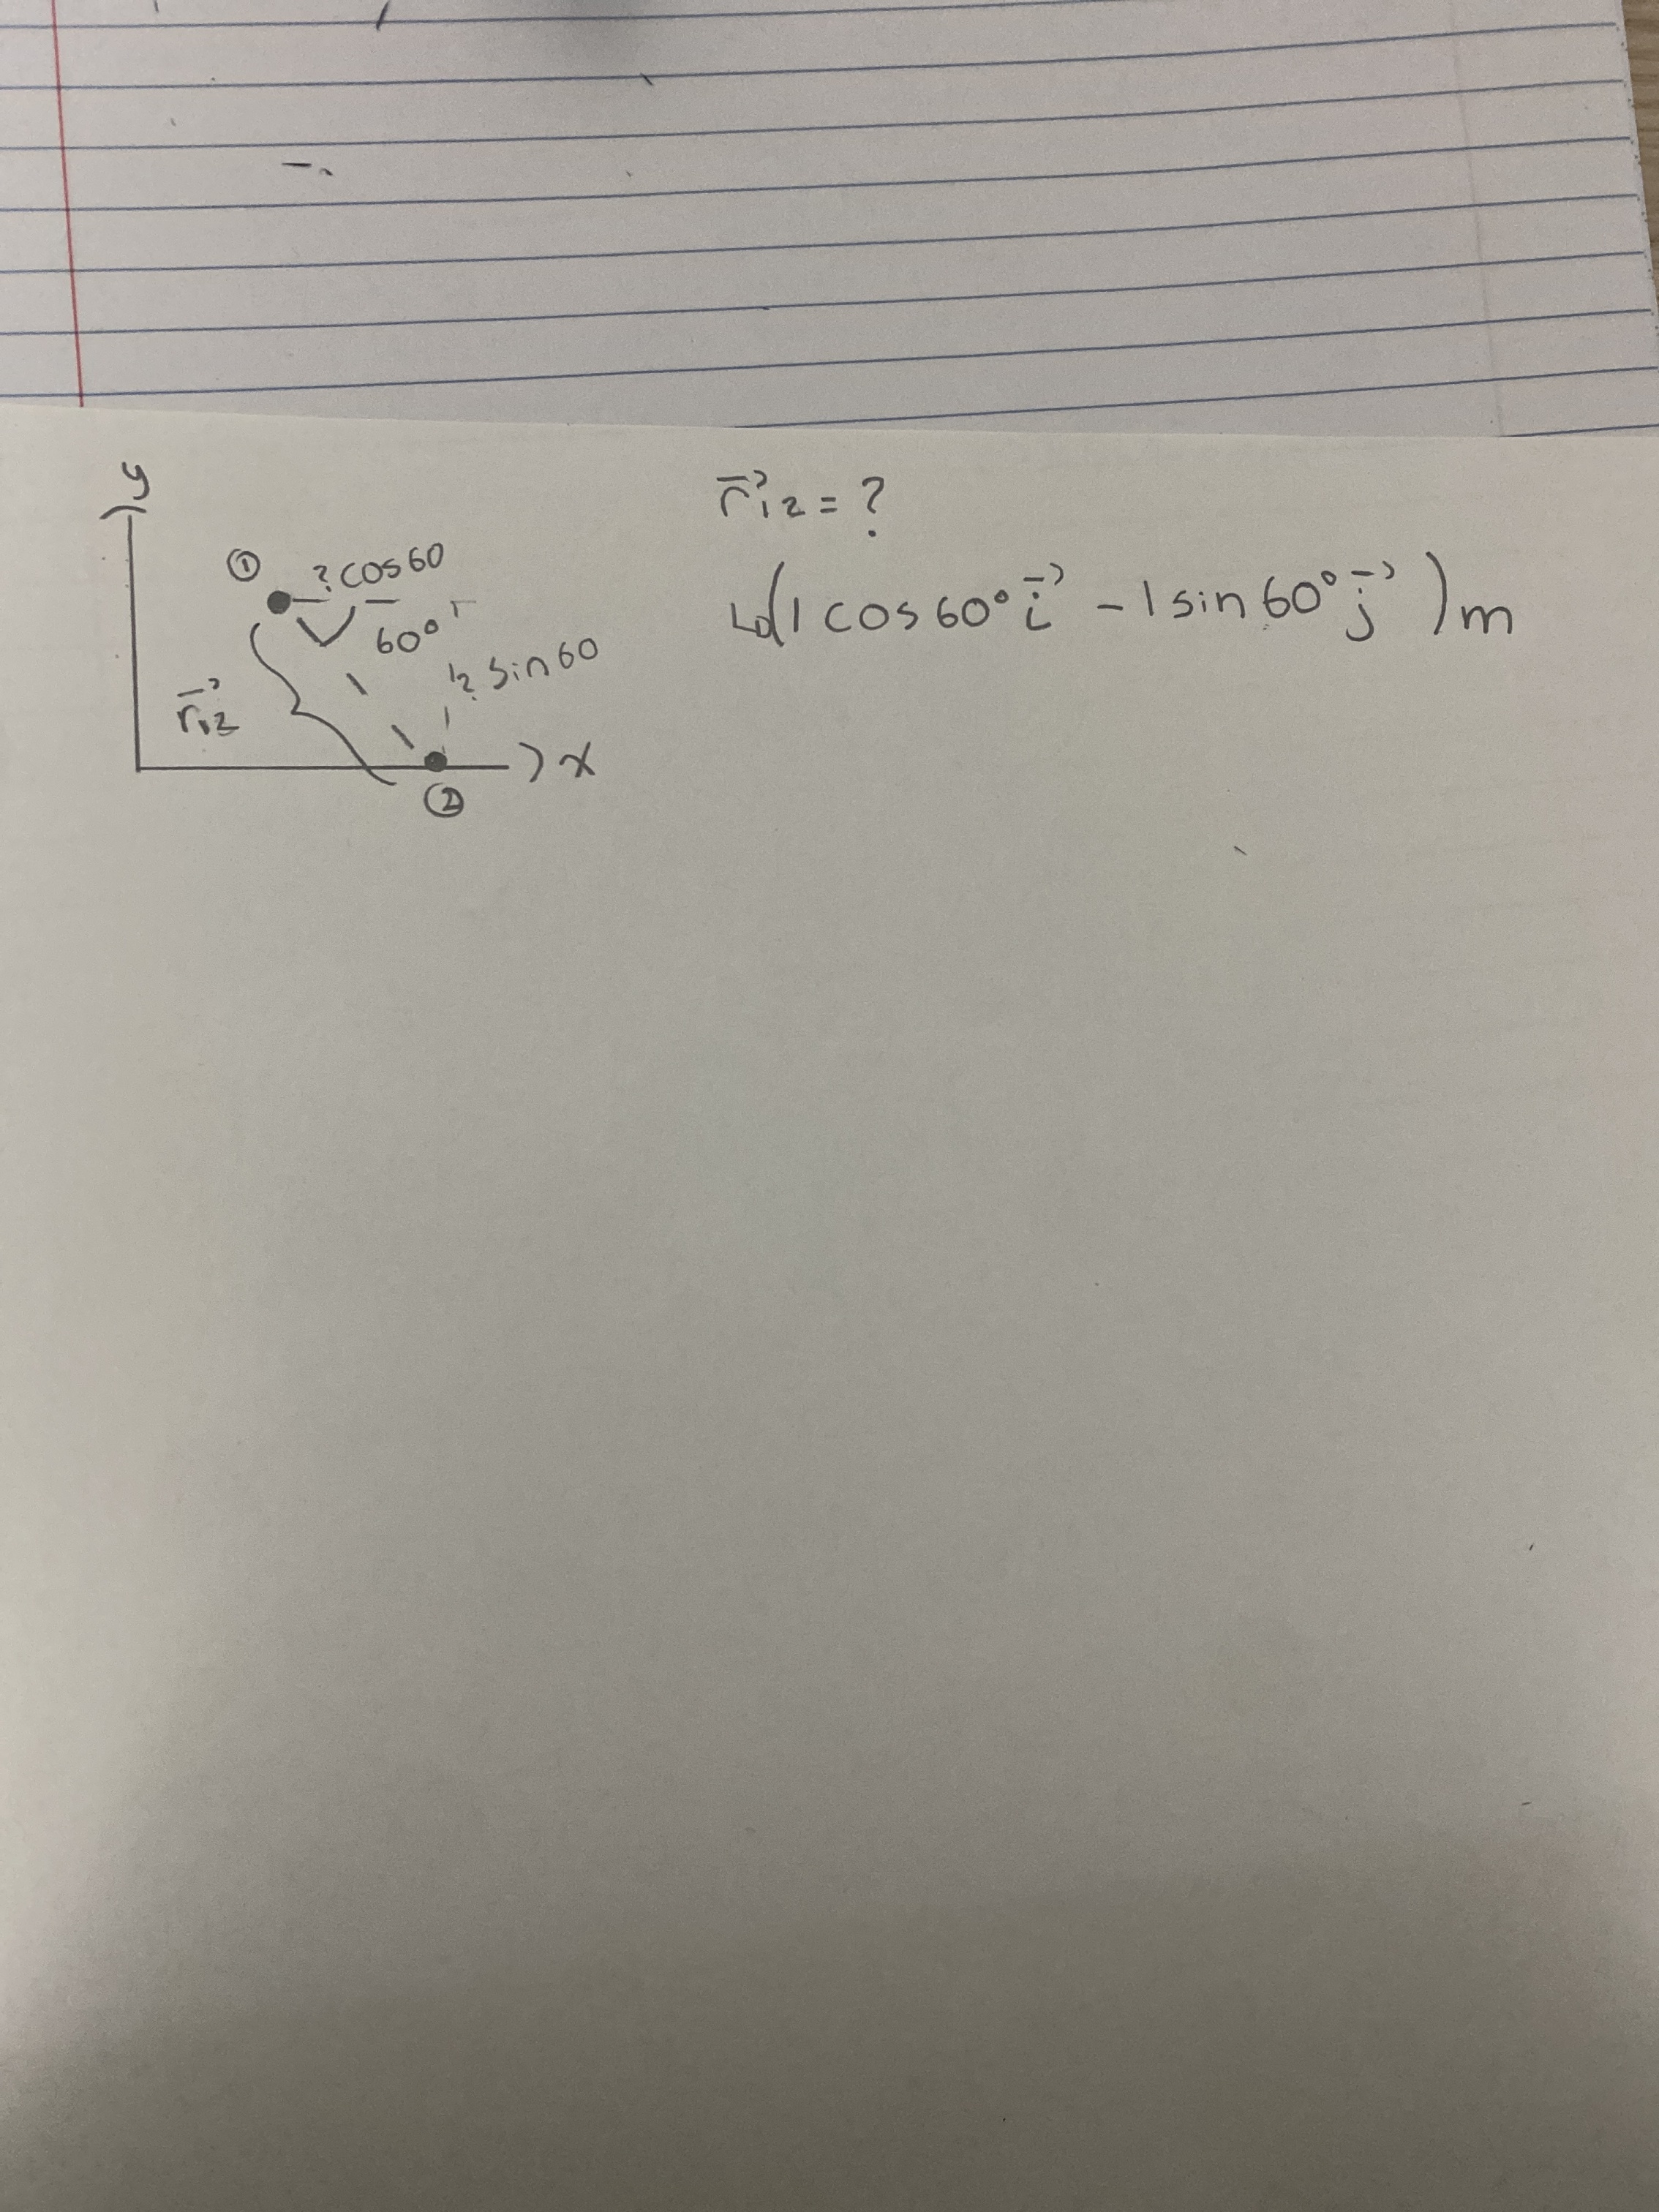 y
① ? cos 60
60°
? sin 60
r⃗₁₂
x
②
r⃗₁₂ = ?
↳ (1 cos 60° i⃗ - 1 sin 60° j⃗) m